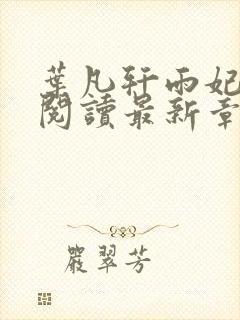 葉凡轩雨妃
閱讀最新章
嚴翠芳